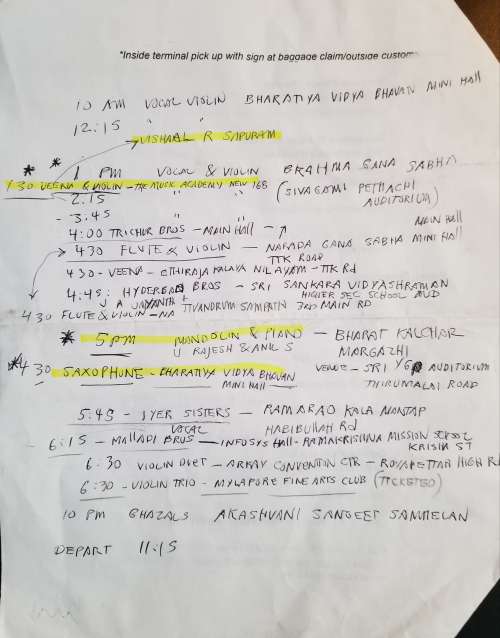 *Inside terminal pick up with sign at baggage claim/outside custom
10 AM VOCAL VIOLIN BHARATIYA VIDYA BHAVAN MINI HALL
12:15 " "
VISHAAL R SAPURAM
* * 1 PM VOCAL & VIOLIN BRAHMA GANA SABHA
1:30 VEENA & VIOLIN - THE MUSIC ACADEMY NEW 168 (SIVAGAMI PETHACHI AUDITORIUM)
2.15 " "
- 3.45 " "
4:00 TRICHUR BROS - MAIN HALL - MAIN HALL
430 FLUTE & VIOLIN - NARADA GANA SABHA MINI HALL
TTK ROAD
430 - VEENA - ETHIRAJA KALAYA NILAYAM - TTK Rd
4:45: HYDERBAD BROS - SRI SANKARA VIDYASHRAMAN
HIGHER SEC SCHOOL AUD
J A JAYANTH + TIVANDRUM SAMPATH 3RD MAIN RD
430 FLUTE & VIOLIN - NA
* 5 PM MANDOLIN & PIANO - BHARAT KALCHAR
U RAJESH & ANIL S MARGAZHI
*4 30 SAXOPHONE - BHARATIYA VIDYA BHAVAN VENUE - SRI YG AUDITORIUM
MINI HALL THIRUMALAI ROAD
5:45 - IYER SISTERS - RAMARAO KALA MONTAP
VOCAL HABIBULLAH Rd
- 6:15 - MALLADI BROS - INFOSYS HALL - RAMAKRISHNA MISSION SCHOOL
KRISHA ST
6:30 VIOLIN DUET - ARRAY CONVENTION CTR - ROYAPETTAH HIGH RD
6:30 - VIOLIN TRIO - MYLAPORE FINE ARTS CLUB (TICKETED)
10 PM GHAZALS AKASHVANI SANGEET SAMMELAN
DEPART 11:15